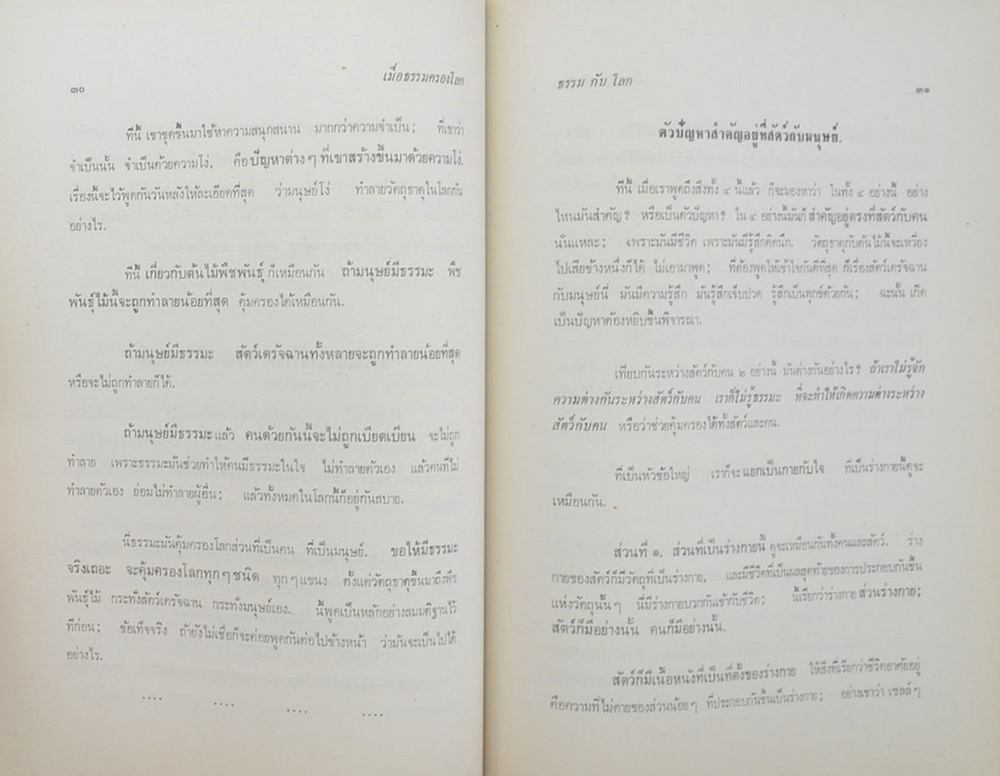 ๓๐
เมื่อธรรมครองโลก
ทีนี้ เขาขุดขึ้นมาใช้หาความสนุกสนาน มากกว่าความจำเป็น; ที่เขาว่า
จำเป็นนั้น จำเป็นด้วยความโง่. คือปัญหาต่างๆ ที่เขาสร้างขึ้นมาด้วยความโง่.
เรื่องนี้จะไว้พูดกันวันหลังให้ละเอียดที่สุด ว่ามนุษย์โง่ ทำลายวัตถุธาตุในโลกกัน
อย่างไร.
ทีนี้ เกี่ยวกับต้นไม้พืชพันธุ์ ก็เหมือนกัน ถ้ามนุษย์มีธรรมะ พืช
พันธุ์ไม้นี้จะถูกทำลายน้อยที่สุด คุ้มครองได้เหมือนกัน.
ถ้ามนุษย์มีธรรมะ สัตว์เดรัจฉานทั้งหลายจะถูกทำลายน้อยที่สุด
หรือจะไม่ถูกทำลายก็ได้.
ถ้ามนุษย์มีธรรมะแล้ว คนด้วยกันนี้จะไม่ถูกเบียดเบียน จะไม่ถูก
ทำลาย เพราะธรรมะมันช่วยทำให้คนมีธรรมะในใจ ไม่ทำลายตัวเอง แล้วคนที่ไม่
ทำลายตัวเอง ย่อมไม่ทำลายผู้อื่น; แล้วทั้งหมดในโลกนี้ก็อยู่กันสบาย.
นี่ธรรมะมันคุ้มครองโลกส่วนที่เป็นคน ที่เป็นมนุษย์. ขอให้มีธรรมะ
จริงเถอะ จะคุ้มครองโลกทุกๆ ชนิด ทุกๆ แขนง ตั้งแต่วัตถุธาตุขึ้นมาถึงพืช
พันธุ์ไม้ กระทั่งสัตว์เดรัจฉาน กระทั่งมนุษย์เอง. นี้พูดเป็นหลักอย่างสมมติฐานไว้
ทีก่อน; ข้อเท็จจริง ถ้ายังไม่เชื่อก็จะค่อยพูดกันต่อไปข้างหน้า ว่ามันจะเป็นไปได้
อย่างไร.
.... .... .... ....
ธรรม กับ โลก
๓๑
ตัวปัญหาสำคัญอยู่ที่สัตว์กับมนุษย์.
ทีนี้ เมื่อเราพูดถึงสิ่งทั้ง ๔ นี้แล้ว ก็จะมองหาว่า ในทั้ง ๔ อย่างนี้ อย่าง
ไหนมันสำคัญ? หรือเป็นตัวปัญหา? ใน ๔ อย่างนี้มันก็สำคัญอยู่ตรงที่สัตว์กับคน
นั่นแหละ; เพราะมันมีชีวิต เพราะมันมีรู้สึกคิดนึก. วัตถุธาตุกับต้นไม้นี้จะเหวี่ยง
ไปเสียข้างหนึ่งก็ได้ ไม่เอามาพูด; ที่ต้องพูดให้เข้าใจกันดีที่สุด ก็เรื่องสัตว์เดรัจฉาน
กับมนุษย์นี่ มันมีความรู้สึก มันรู้สึกเจ็บปวด รู้สึกเป็นทุกข์ด้วยกัน; ฉะนั้น เกิด
เป็นปัญหาต้องหยิบขึ้นพิจารณา.
เทียบกันระหว่างสัตว์กับคน ๒ อย่างนี้ มันต่างกันอย่างไร? ถ้าเราไม่รู้จัก
ความต่างกันระหว่างสัตว์กับคน เราก็ไม่รู้ธรรมะ ที่จะทำให้เกิดความต่างระหว่าง
สัตว์กับคน หรือว่าช่วยคุ้มครองได้ทั้งสัตว์และคน.
ที่เป็นหัวข้อใหญ่ เราก็จะแยกเป็นกายกับใจ ที่เป็นร่างกายนี้ดูจะ
เหมือนกัน.
ส่วนที่ ๑. ส่วนที่เป็นร่างกายนี้ ดูจะเหมือนกันทั้งคนและสัตว์. ร่าง
กายของสัตว์ก็มีวัตถุที่เป็นร่างกาย, และมีชีวิตที่เป็นผลสุดท้ายของการประกอบกันขึ้น
แห่งวัตถุนั้นๆ นี่มีร่างกายบวกกันเข้ากับชีวิต; นี้เรียกว่าร่างกาย ส่วนร่างกาย;
สัตว์ก็มีอย่างนั้น คนก็มีอย่างนั้น.
สัตว์ก็มีเนื้อหนังที่เป็นที่ตั้งของร่างกาย ให้สิ่งที่เรียกว่าชีวิตอาศัยอยู่
คือความที่ไม่ตายของส่วนน้อยๆ ที่ประกอบกันขึ้นเป็นร่างกาย; อย่างเขาว่า เซลล์ๆ